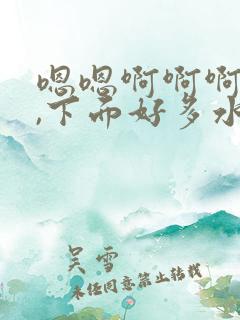 嗯嗯啊啊啊
,下面好多水
吴雪
未经同意禁止转载